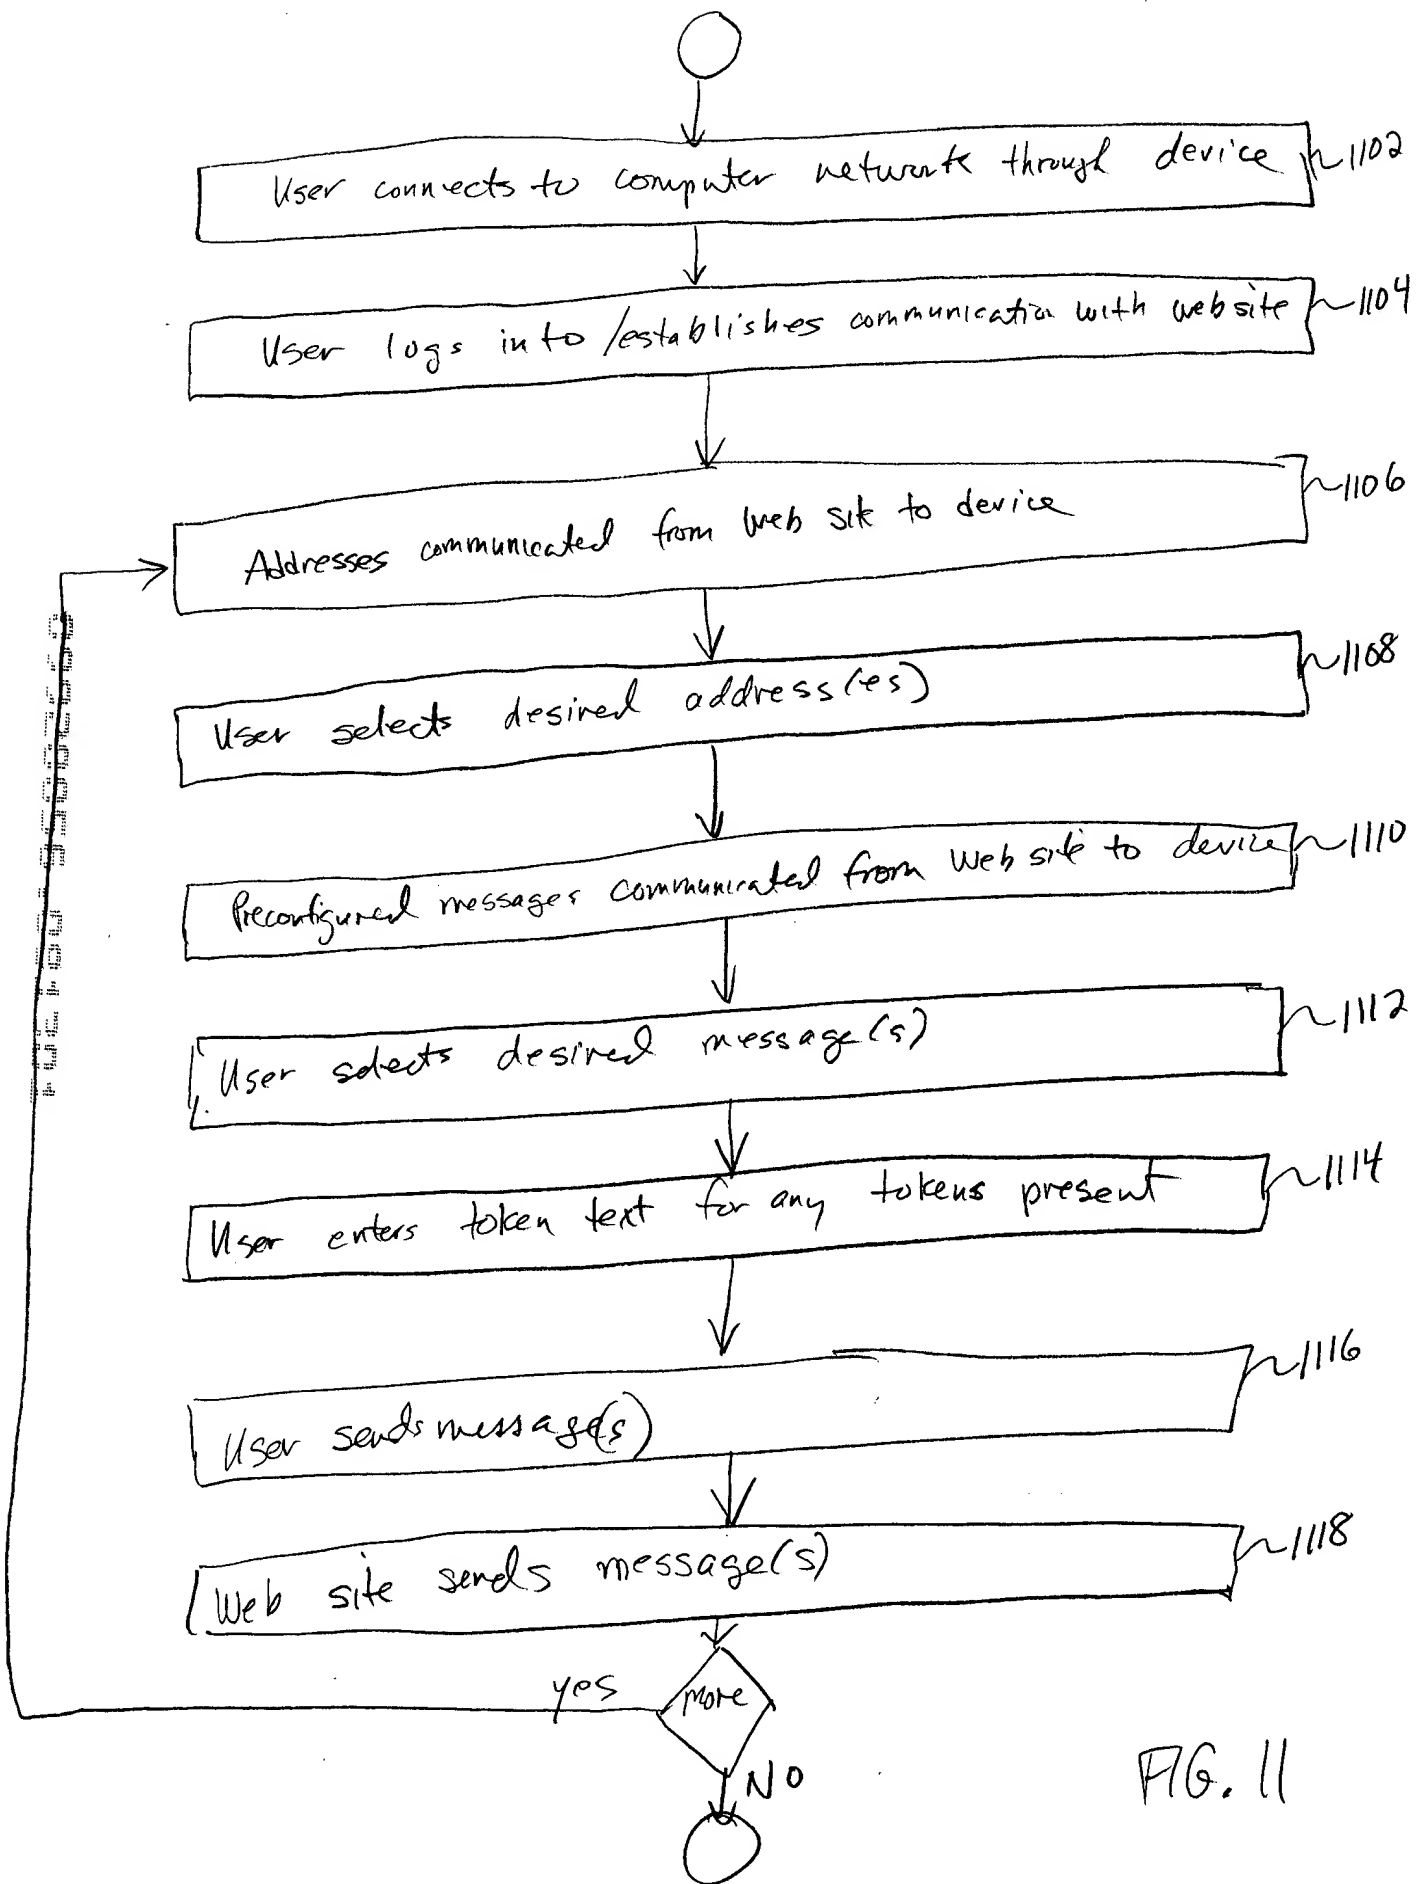 User connects to computer network through device 1102
User logs into/establishes communication with website 1104
Addresses communicated from web site to device 1106
User selects desired address(es) 1108
Preconfigured messages communicated from Web site to device 1110
User selects desired message(s) 1112
User enters token text for any tokens present 1114
User sends message(s) 1116
Web site sends message(s) 1118
yes
more
NO
FIG. 11